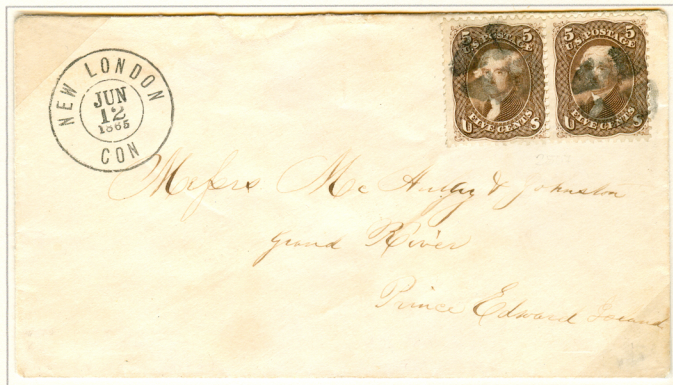 NEW LONDON
JUN
12
1865
CON
5 5
U.S. POSTAGE
FIVE CENTS
U S
5 5
U.S. POSTAGE
FIVE CENTS
U S
Messrs Mc & Johnston
Grand River
Prince Edward Island